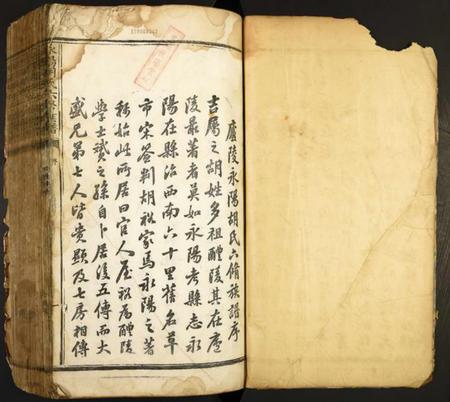 廬陵永陽胡氏六脩族譜序
吉屬之胡姓多祖醴陵其在廬
陵最著者莫如永陽考縣志永
陽在縣治西南六十里舊名草
市宋簽判胡 家焉永陽之著
稱始此所居曰官人屋祝爲醴陵
學士 之孫自卜居後五傳而大
盛兄弟七人皆貴顯及七房相傳